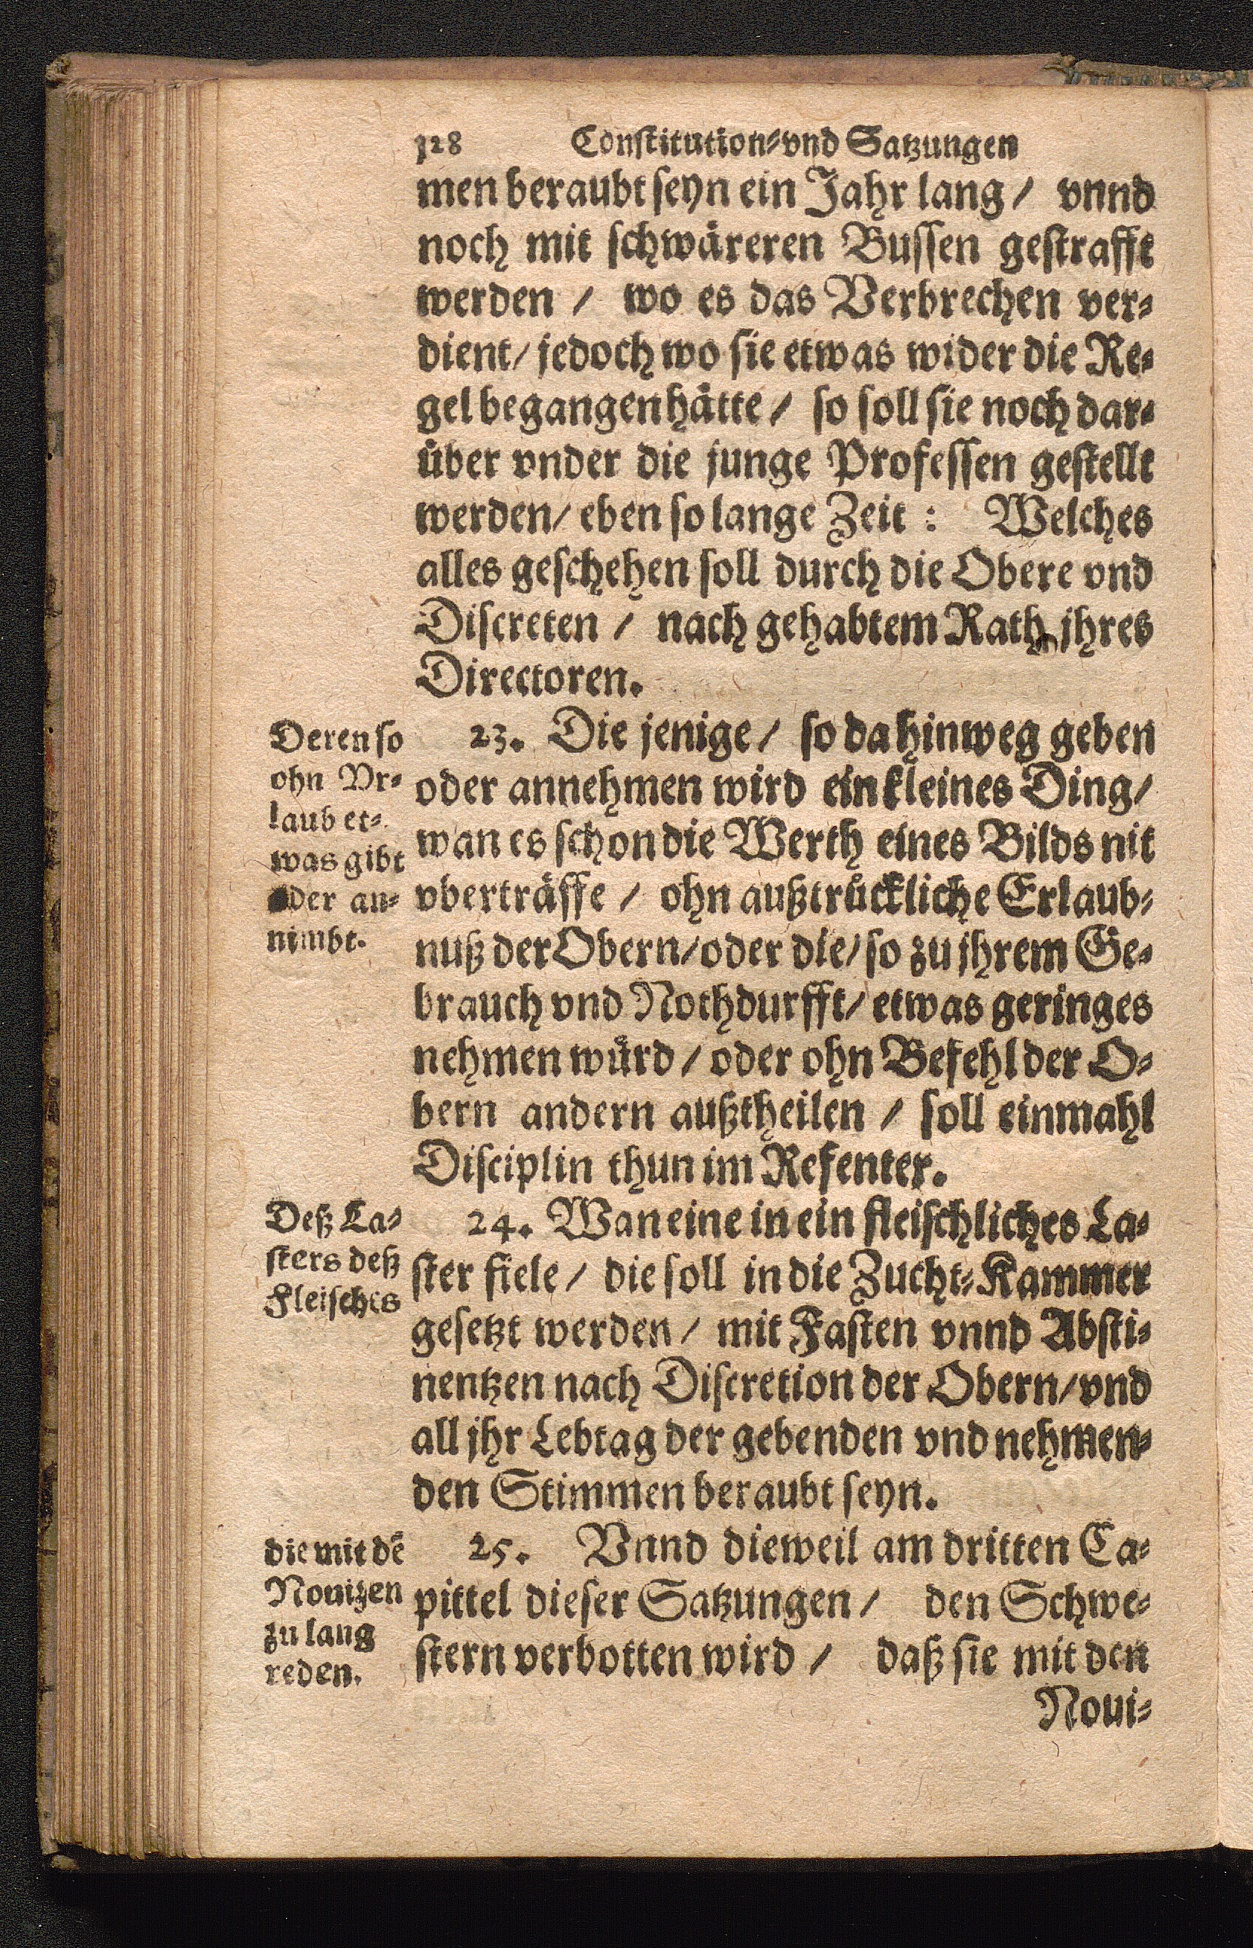 328 Constitution-vnd Satzungen
men beraubt seyn ein Jahr lang / vnnd
noch mit schwäreren Bussen gestrafft
werden / wo es das Verbrechen ver-
dient / jedoch wo sie etwas wider die Re-
gel begangen hätte / so soll sie noch dar-
über vnder die junge Professen gestellt
werden / eben so lange Zeit : Welches
alles geschehen soll durch die Obere vnd
Discreten / nach gehabtem Rath jhres
Directoren.
Deren so
ohn Vr-
laub et-
was gibt
oder an-
nimbt.
23. Die jenige / so da hinweg geben
oder annehmen wird ein kleines Ding /
wan es schon die Werth eines Bilds nit
vberträffe / ohn außtrückliche Erlaub-
nuß der Obern / oder die / so zu jhrem Ge-
brauch vnd Nothdurfft / etwas geringes
nehmen würd / oder ohn Befehl der O-
bern andern außtheilen / soll einmahl
Disciplin thun im Refenter.
Deß La-
sters deß
Fleisches
24. Wan eine in ein fleischliches La-
ster fiele / die soll in die Zucht-Kammer
gesetzt werden / mit Fasten vnnd Absti-
nentzen nach Discretion der Obern / vnd
all jhr Lebtag der gebenden vnd nehmen-
den Stimmen beraubt seyn.
die mit dē
Nouitzen
zu lang
reden.
25. Vnnd dieweil am dritten Ca-
pittel dieser Satzungen / den Schwe-
stern verbotten wird / daß sie mit den
Noui-